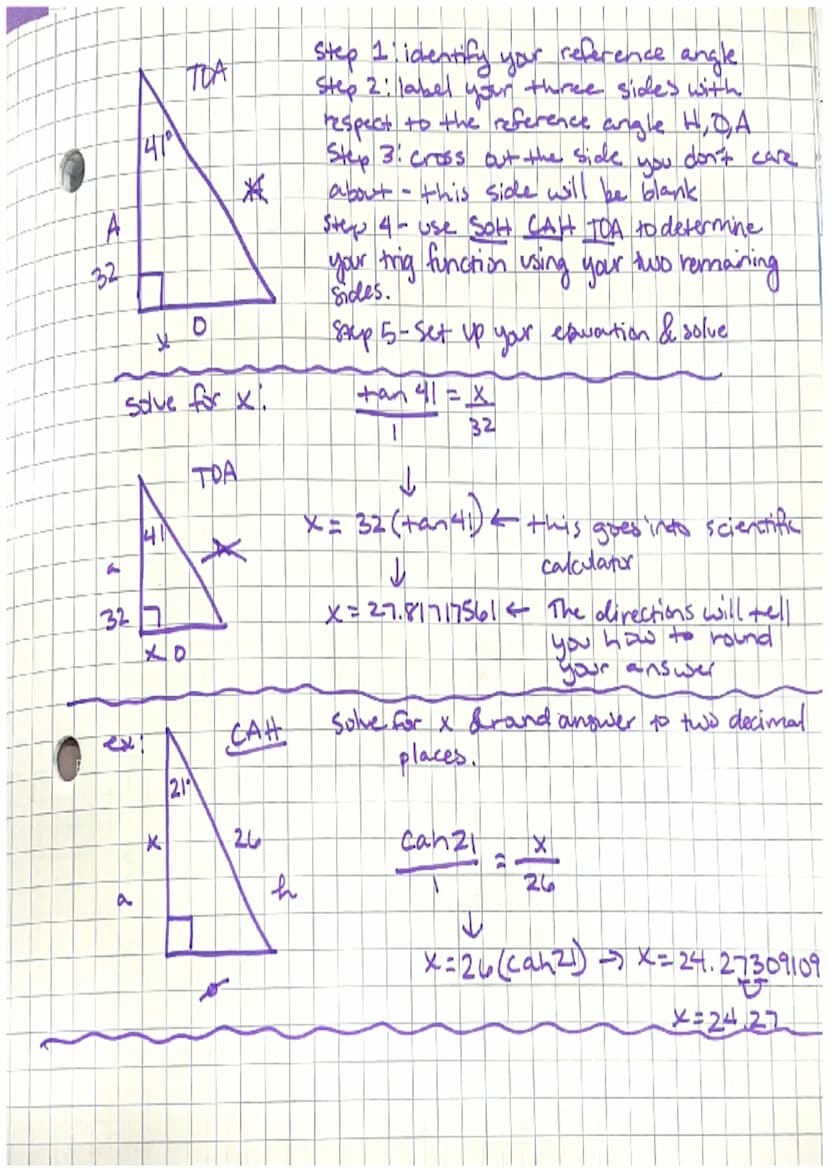 TOA
41°
A
32
x
O
H
Step 1: identify your reference angle
Step 2: label your three sides with
respect to the reference angle H, O, A
Step 3: cross out the side you don't care
about - this side will be blank
Step 4 - use SOH CAH TOA to determine
your trig function using your two remaining
sides.
Step 5 - Set up your equation & solve
solve for x:
tan 41 = x
1 32
TOA
41
a
32
x O
↓
x = 32 (tan 41) ← this goes into scientific
calculator
↓
x = 27.81717561 ← The directions will tell
you how to round
your answer
ex:
CAH
Solve for x & round answer to two decimal
places.
21°
x
26
a
h
cah 21 = x
1 26
↓
x = 26 (cah 21) → x = 24.27309109
x = 24.27